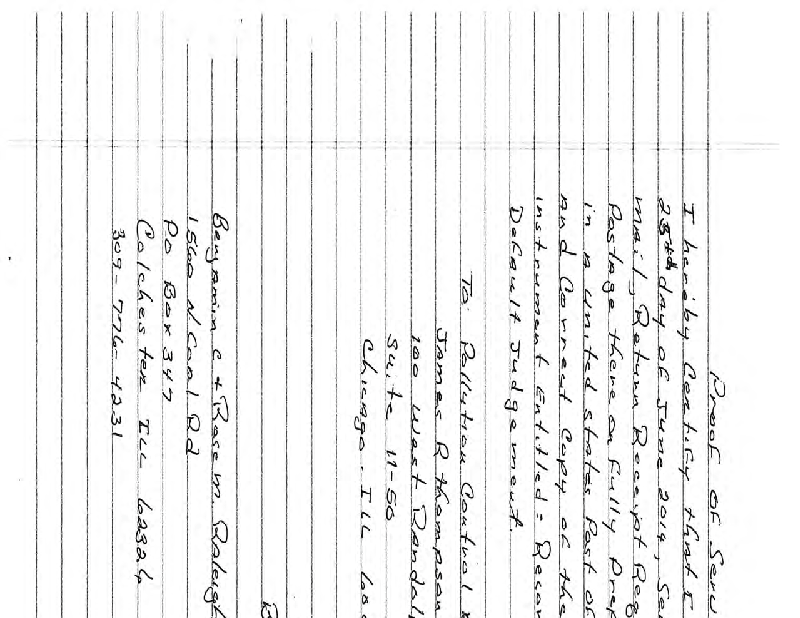 Proof OF Serv
I hereby Certify that I
25th day of June 2014, Se
mail, Return Receipt Reg
Postage there on fully prep
in a united states Post of
and Correct Copy of the
instrument Entitled = Recon
Default Judgement.
To: Pollution Control
James R thompson
100 West Randol
suite 11-50
Chicago. ILL 60
B
Benjamin C + Rose M. Raleigh
1560 N Coal Rd
PO Box 347
Colchester ILL 62326
309-776-4231